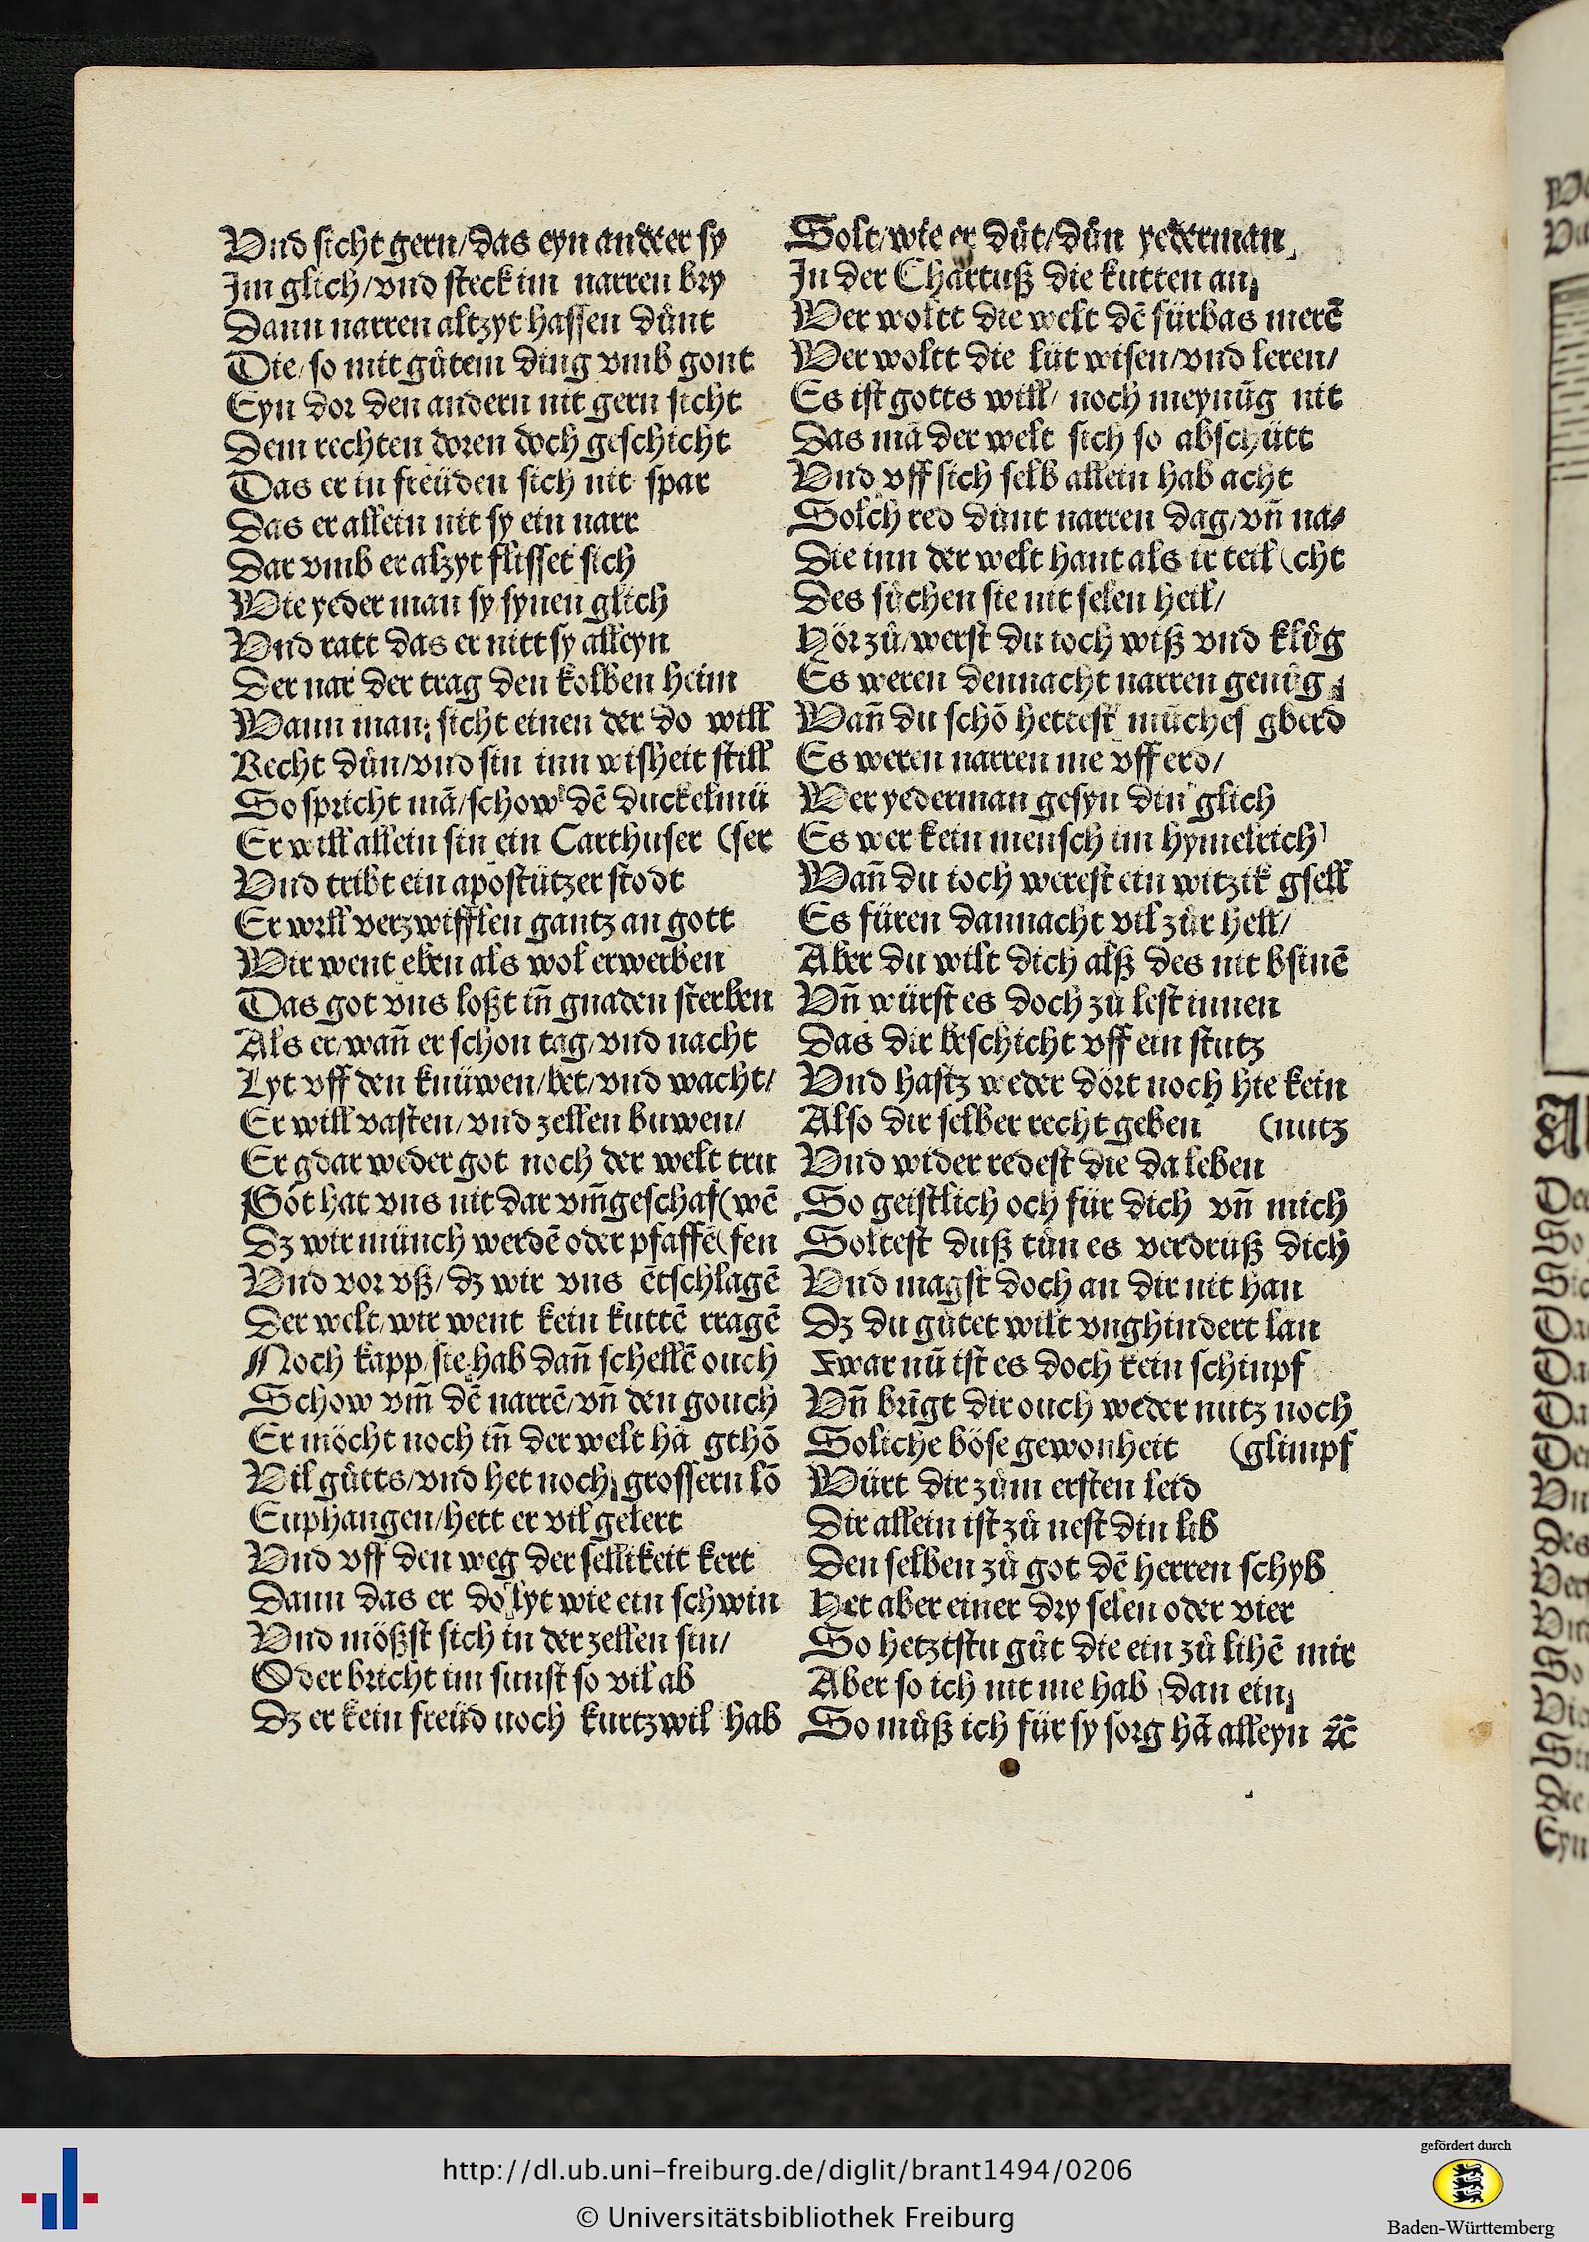 Vnd sicht gern/das eyn ander sy
Im glich/vnd steck im narren bry
Dann narren altzyt hassen důnt
Die/so mit gůtem ding vmb gont
Eyn dor den andern nit gern sicht
Dem rechten doren doch geschicht
Das er in freüden sich nit spar
Das er allein nit sy ein narr
Dar vmb er alzyt flisset sich
Wie yeder man sy synen glich
Vnd ratt das er nitt sy alleyn
Der nar der trag den kolben heim
Wann man; sicht einen der do will
Recht důn/vnd sin inn wisheit still
So spricht mā/schow dē duckelmü
Er will allein sin ein Carthuser (ser
Vnd tribt ein apostützer stodt
Er will verzwifflen gantz an gott
Wir went eben als wol erwerben
Das got vns loßt in̄ gnaden sterben
Als er/wan̄ er schon tag/vnd nacht
Lyt vff den knüwen/bet/vnd wacht/
Er will vasten/vnd zellen buwen/
Er gdar weder got noch der welt tru
Got hat vns nit dar vm̄geschaf(wē
Dz wir münch werdē oder pfaffē(fen
Vnd vor vß/dz wir vns ētschlagē
Der welt/wir went kein kuttē rragē
Noch kapp/sie hab dan̄ schellē ouch
Schow vm̄ dē narrē/vn̄ den gouch
Er möcht noch in̄ der welt hā gthō
Vil gůtts/vnd het noch grossern lō
Enphangen/hett er vil gelert
Vnd vff den weg der sellikeit kert
Dann das er do lyt wie ein schwin
Vnd mößst sich in der zellen sin/
Oder bricht im sunst so vil ab
Dz er kein freüd noch kurtzwil hab
Solt/wie er důt/důn yederman
In der Chartuß die kutten an
Wer woltt die welt dē fürbas merē
Wer woltt die lüt wisen/vnd leren/
Es ist gotts will/ noch meynūg nit
Das mā der welt sich so abschütt
Vnd vff sich selb allein hab acht
Solch red dunt narren dag/vn̄ na⸗
Die inn der welt hant als ir teil (cht
Des sůchen sie nit selen heil/
Hör zů/werst du ioch wiß vnd klůg
Es weren dennacht narren genůg
Wan̄ du schō hettest müches gberd
Es weren narren me vff erd/
Wer yederman gesyn din glich
Es wer kein mensch im hymelrich
Wan̄ du ioch werest ein witzik gsell
Es füren dannacht vil zůr hell/
Aber du wilt dich alß des nit bsinē
Vn̄ würst es doch zů lest innen
Das dir beschicht vff ein stutz
Vnd hastz weder dört noch hie kein
Also dir selber recht geben (nutz
Vnd wider redest die da leben
So geistlich och für dich vn̄ mich
Soltest duß tůn es verdruß dich
Vnd magst doch an dir nit han
Dz du gůtet wilt vnghindert lan
Zwar nū ist es doch kein schimpf
Vn̄ brīgt dir ouch weder nutz noch
Soliche böse gewonheit (glimpf
Würt dir zům ersten leid
Dir allein ist zů nest din lib
Den selben zů got dē herren schyb
Het aber einer dry selen oder vier
So hetzistu gůt die ein zů lihē mir
Aber so ich nit me hab dan ein
So můß ich für sy sorg hā alleyn ⁊c̄
http://dl.ub.uni-freiburg.de/diglit/brant1494/0206
© Universitätsbibliothek Freiburg
gefördert durch
Baden-Württemberg